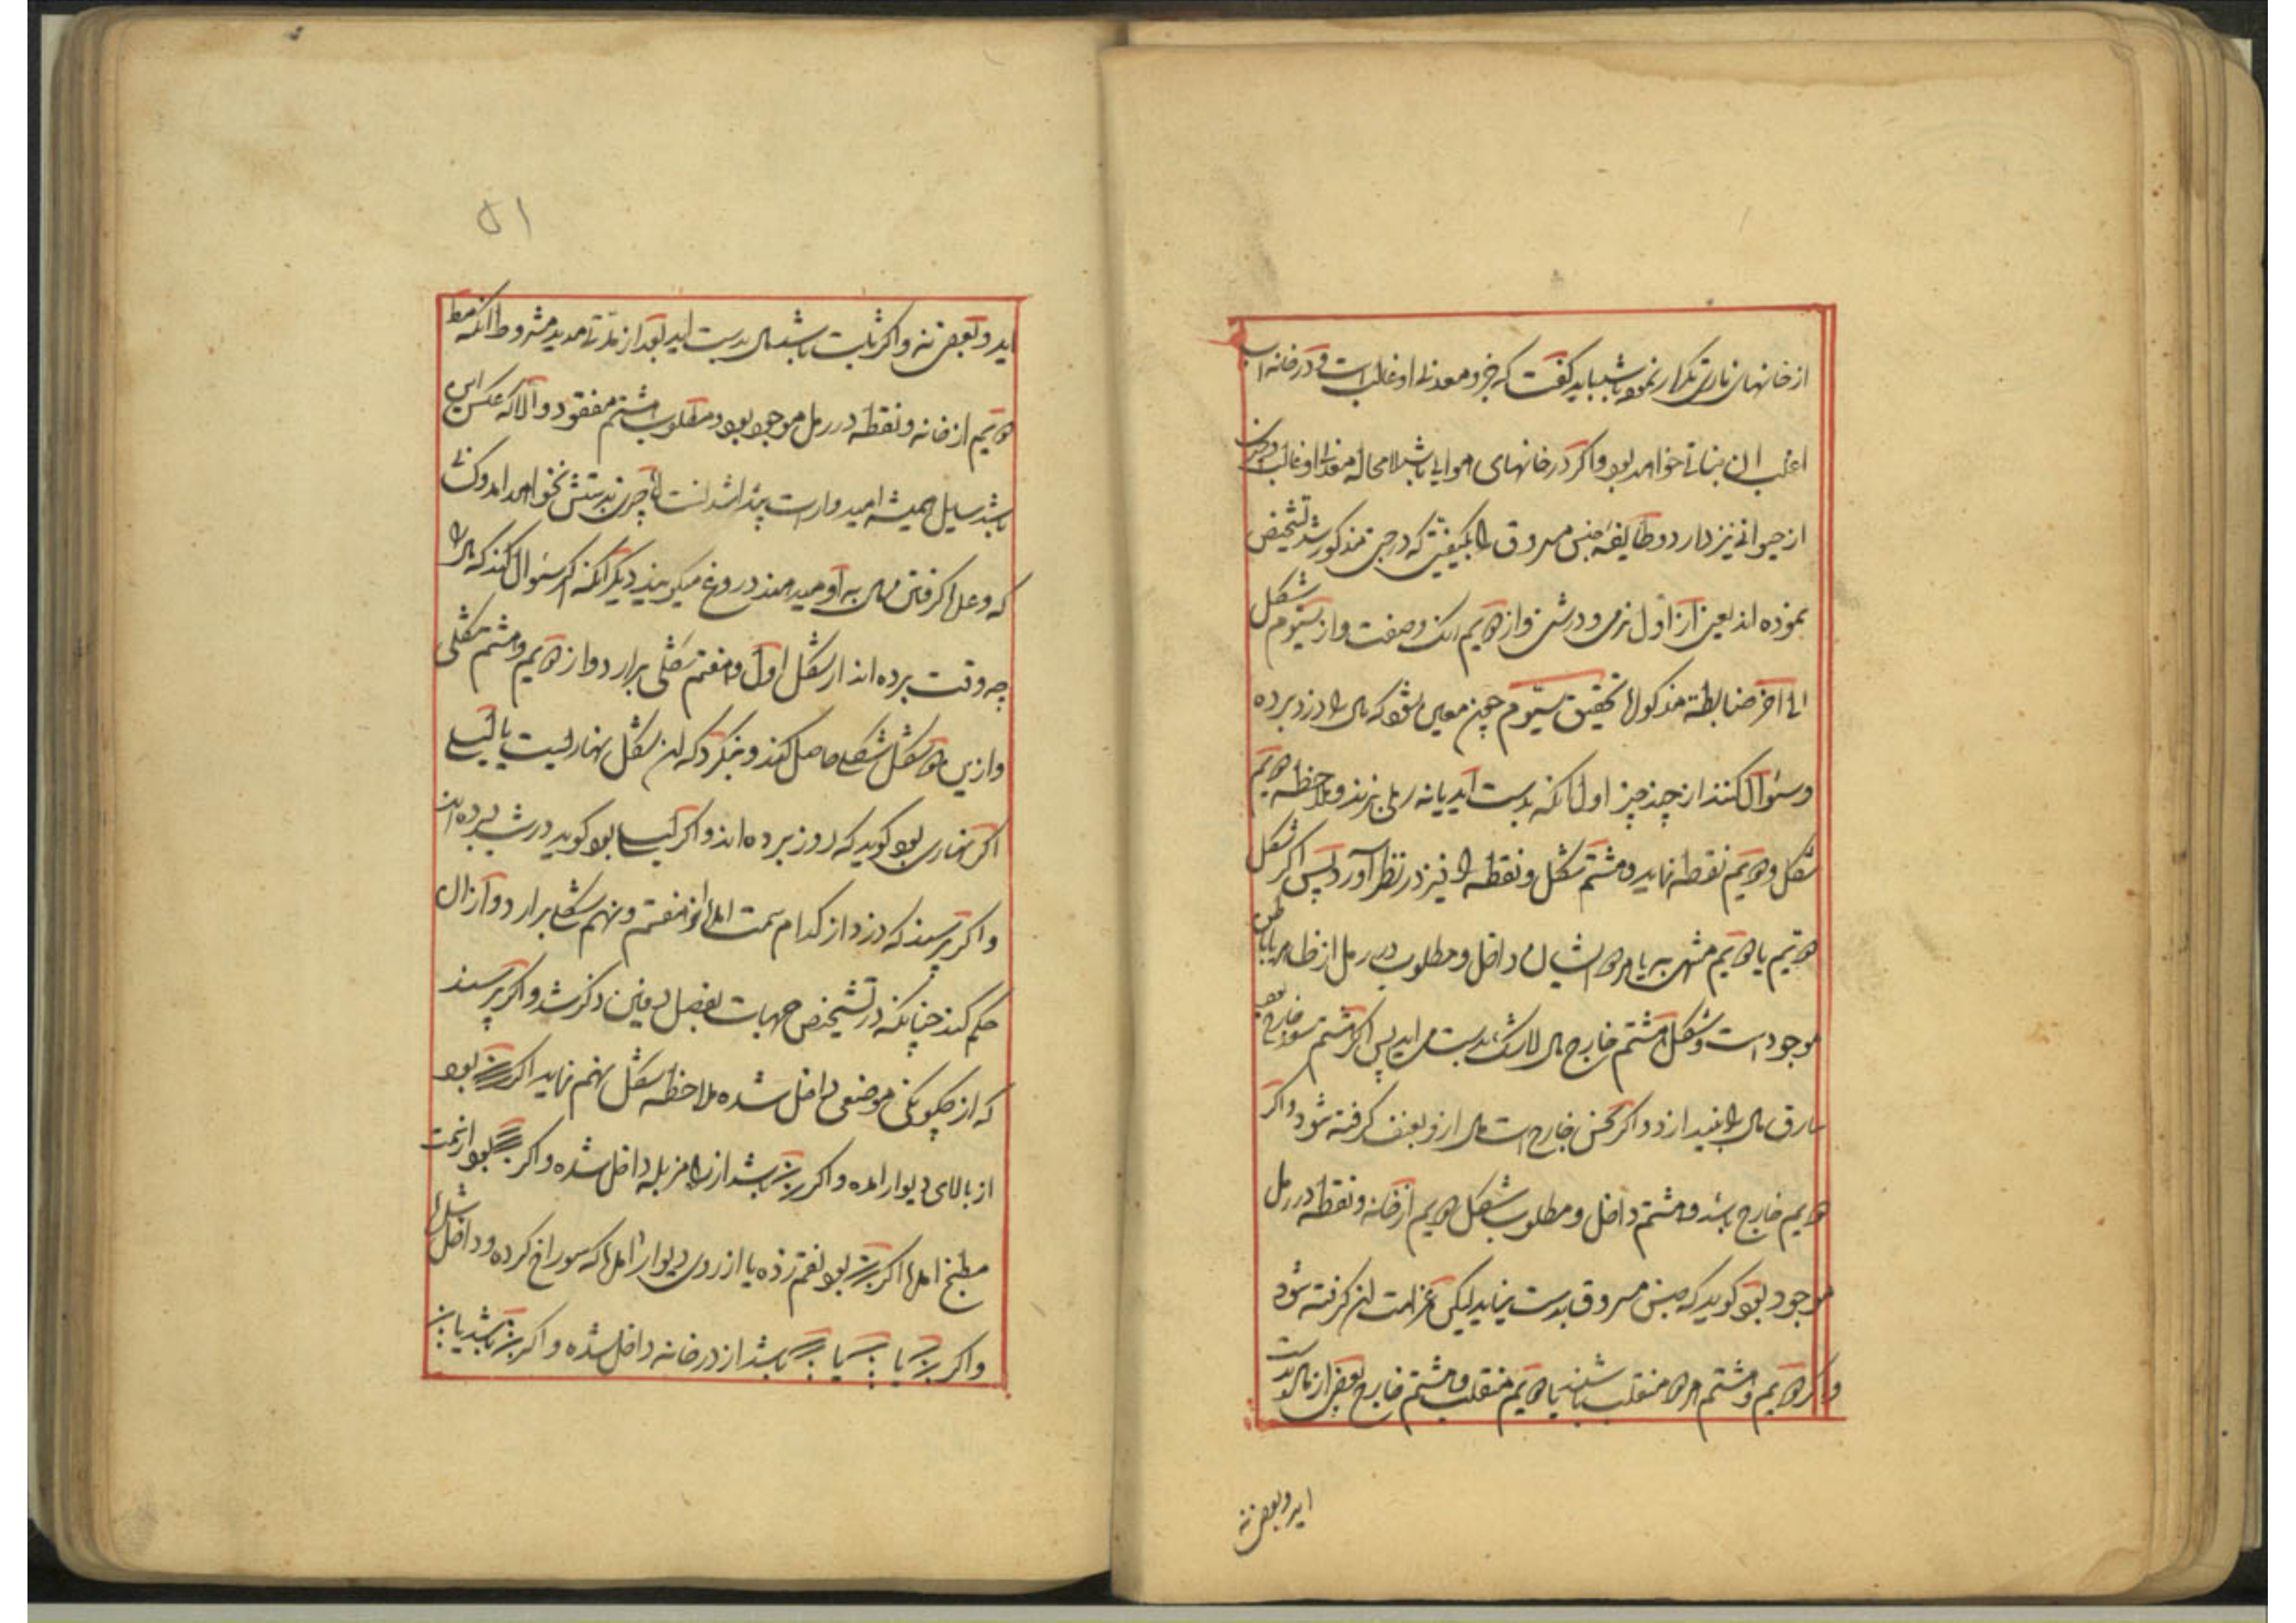 از خانهای ناری تکرار نموده باشد باید گفت که جزو معدنی او غالب است و در خانه آب
اغلب آن نباتی خواهد بود و اگر در خانهای هوایی باشد لامحاله معدنی او غالب
از حیوانی نیز دارد و طایفه جنس مسروق را بکیفیتی که در مذکور شد تشخیص
نموده اند یعنی از اول نرمی و درشتی و از دویم رنگ و صفت و از سیوم شکل
الی آخر ضابطه مذکوره تحقیق سیوم چون معین شود که مال را دزد برده
و سئوال کنند از چند چیز اول آنکه بدست آید یا نه رملی بزنند و ملاحظه دویم
شکل و دویم نقطه نماید و هشتم شکل و نقطه را نیز در نظر آورد پس اگر شکل
دویم یا دویم منتهی به یا هر دو اشکال داخل و مطلوب در رمل از ظاهر یا باطن
موجود است و شکل هشتم خارج مال لاشک بدست می اید پس اگر هشتم سعد خارج بود
سارق مال را بیندازد و اگر نحس خارج است مال ازو بعنف گرفته شود و اگر
دویم خارج باشد و هشتم داخل و مطلوب شکل دویم از خانه و نقطه در رمل
موجود بود گوید که جنس مسروق بدست نیاید لیکن غرامت آن گرفته شود
و اگر دویم و هشتم هر دو منقلب باشند یا دویم منقلب و هشتم خارج بعضی از مال بدست
اید و بعضی نه
۵۱
اید و بعضی نه و اگر ثابت باشد مال بدست اید بعد از مدتی مدید مشروط آنکه نقطه
دویم از خانه و نقطه در رمل موجود بود و مطلوب هشتم مفقود و الا که عکس این
باشد سایل همیشه امیدوار است چیزی بدستش نخواهد امد و کسانی
که وعده گرفتن مال به او میدهند دروغ میگویند دیگر آنکه اگر سئوال کنند که مال را
چه وقت برده اند از شکل اول و هفتم شکلی برارد و از دویم و هشتم شکلی
و ازین دو شکل شکلی حاصل کند و بنگرد که آن شکل نهاریست یا لیلی
اگر نهاری بود گوید که روز برده اند و اگر لیلی بود گوید در شب برده اند
و اگر پرسند که دزد از کدام سمت امده از هفتم و نهم شکلی برارد و از آن
حکم کند چنانکه در تشخیص جهات بفصل دفین ذکر شد و اگر پرسند
که از چگونگی موضعی داخل شده ملاحظه شکل نهم نماید اگر بود
از بالای دیوار امده و اگر باشد از راه مزبله داخل شده و اگر بود از سمت
مطبخ امده اگر بود نقم زده یا از روی دیوار امده که سوراخ کرده و داخل شده
و اگر یا یا باشد از در خانه داخل شده و اگر باشد یا